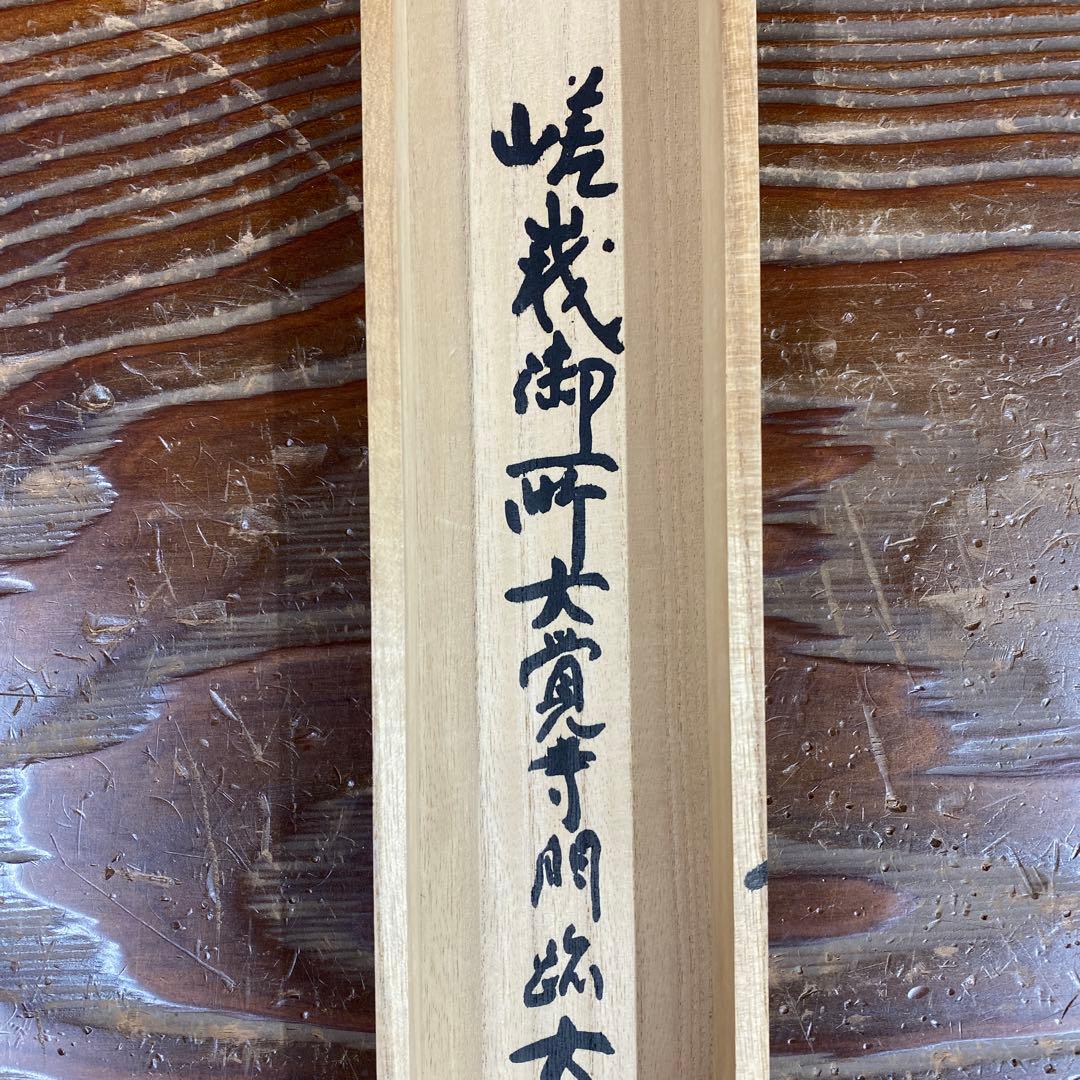 嵯峩御所大覚寺門跡大